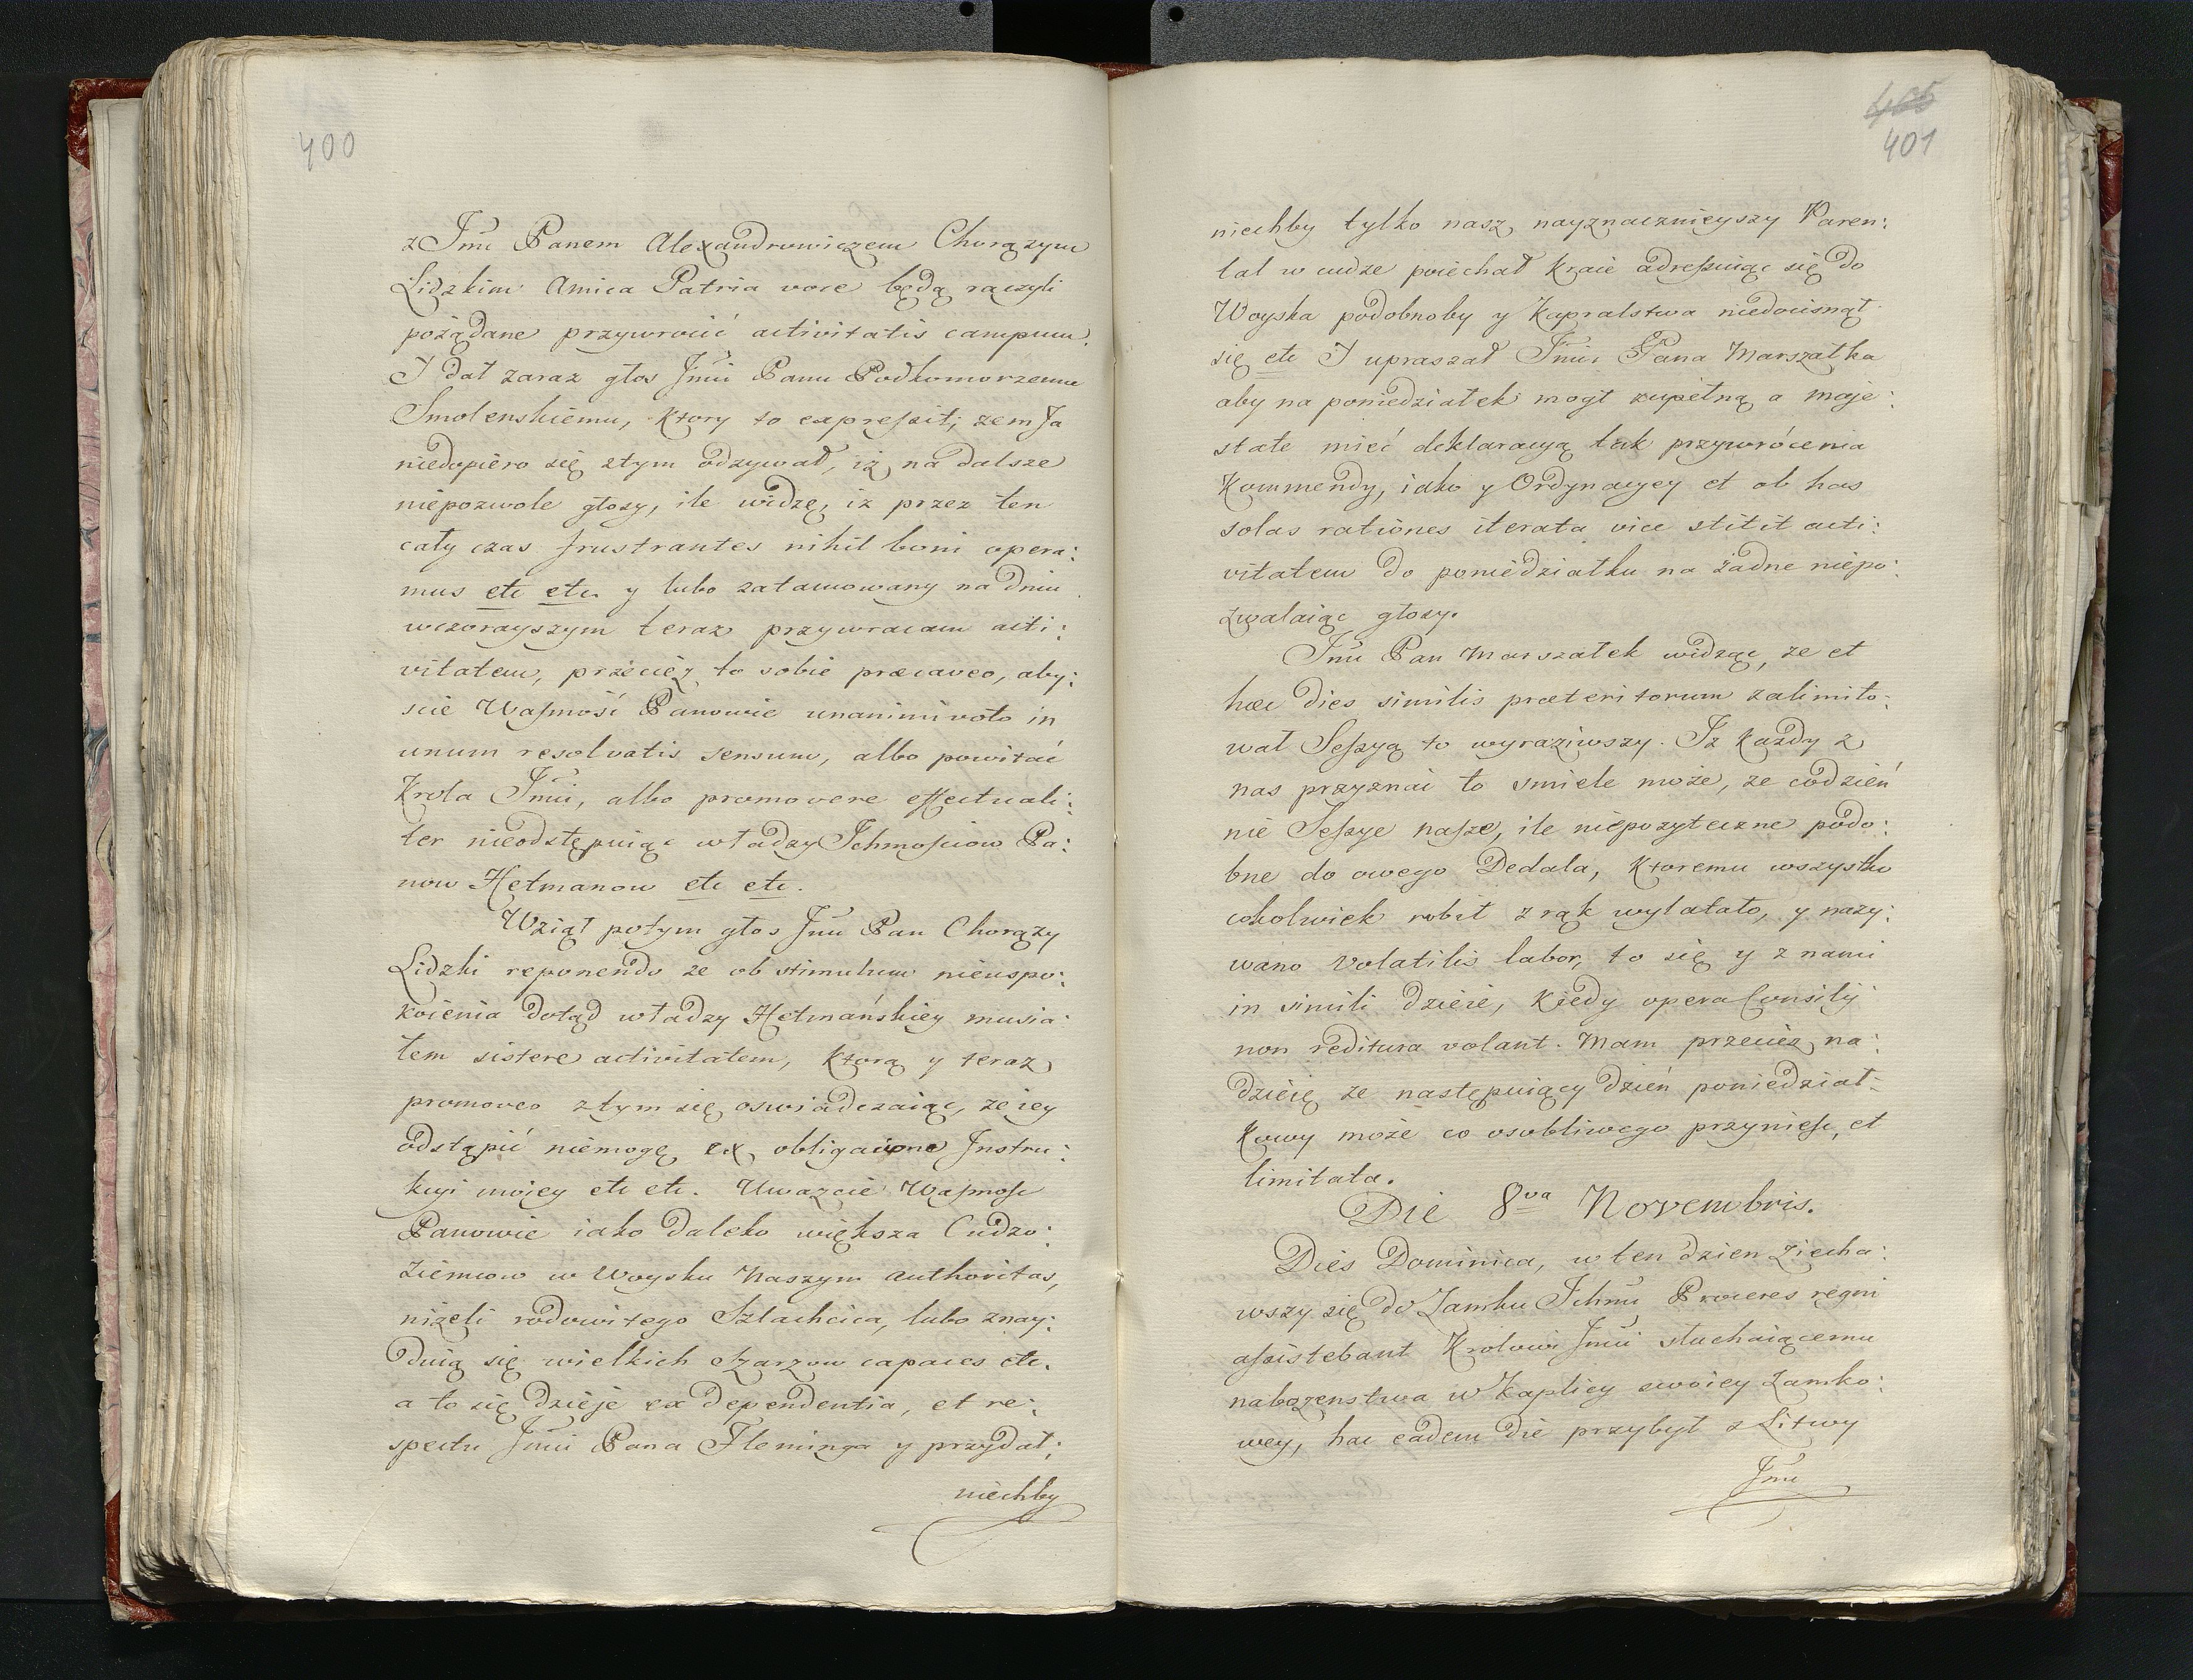 400
z Jmć Panem Alexandrowiczem Chorązym
Lidzkim Amica Patria voce będą raczyli
pożądane przywrocić activitatis campum.
I dał zaraz głos Jmći Panu Podkomorzemu
Smolenskiemu, ktory to expressit; zem Ja
niedopiero się ztym odzywał, iż na dalsze
niepozwole głosy, ile widzę, iz przez ten
cały czas frustrantes nihil boni opera:
mus etc etc. y lubo zatamowany na dniu
wczorayszym teraz przywracam acti:
vitatem, przecięż to sobie præcaveo, aby:
scie Waszmość Panowie unanimi voto in
unum resolvatis sensum, albo powitać
Krola Jmći, albo promovere effectuali:
ter nieodstępuiąc władzy Ichmościow Pa:
now Hetmanow etc etc.
Wziął potym głos Jmć Pan Chorązy
Lidzki reponendo ze ob stimulum nieuspo:
koienia dotąd władzy Hetmańskiey musia:
łem sistere activitatem, ktorą y teraz
promoveo ztym się oswiadczaiąc, ze iey
odstąpić niemogę ex obligatione Instru:
kcyi moiey etc etc. Uwazcie Waszmość
Panowie iako daleko większa Cudzo:
ziemcow w Woysku Naszym Authoritas,
niżeli rodowitego Szlachcica, lubo znay:
duią się wielkich Szarzow capaces etc.
a to się dzieje ex dependentia, et re:
spectu Jmći Pana Fleminga y przydał:
niechby
465
401
niechby tylko nasz nayznacznieyszy Paren:
tal w cudze poiechał kraie adressuiąc się do
Woyska podobnoby y Kapralstwa niedocisnął
się etc I upraszał Jmći Pana Marszałka
aby na poniedziałek mogł zupełną a maje:
state mieć deklaracyą tak przywrócenia
Kommendy, iako y Ordynacyey et ob has
solas rationes iterata vice stitit acti:
vitatem do poniedziałku na żadne niepo:
zwalaiąc głosy.
Jmć Pan Marszałek widząc, ze et
hæc dies similis præteritorum zalimito:
wał Sessyą to wyraziwszy. Iz każdy z
nas przyznać to smiele może, ze codzień
nie Sessye nasze, ile niepozyteczne podo:
bne do owego Dedala, ktoremu wszystko
cokolwiek robił z rąk wylatało, y nazy:
wano Volatilis labor, to się y z nami
in simili dzieie, kiedy opera Consilij
non reditura volant. Mam przecież na:
dzieię ze następuiący dzień poniedział:
kowy może co osobliwego przyniesc, et
limitata.
Die 8va Novembris.
Dies Dominica, w ten dzien ziecha:
wszy się do Zamku Ichmć Proceres regni
assistebant Krolowi Jmći słuchaiącemu
nabozenstwa w Kaplicy swoiey Zamko:
wey, hac eadem die przybył z Litwy
Jmć